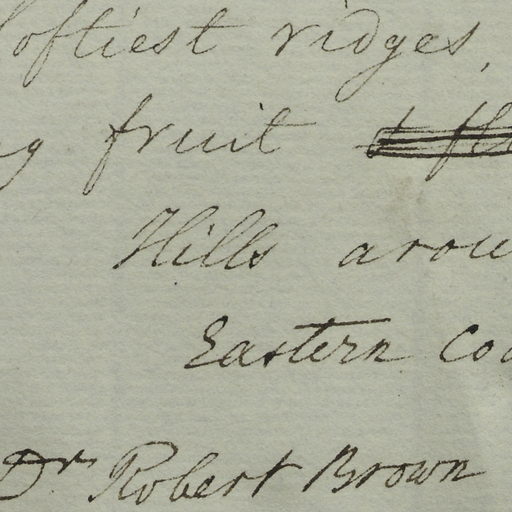 loftiest ridges,
fruit
Hills arou
Eastern Coa
Dr Robert Brown